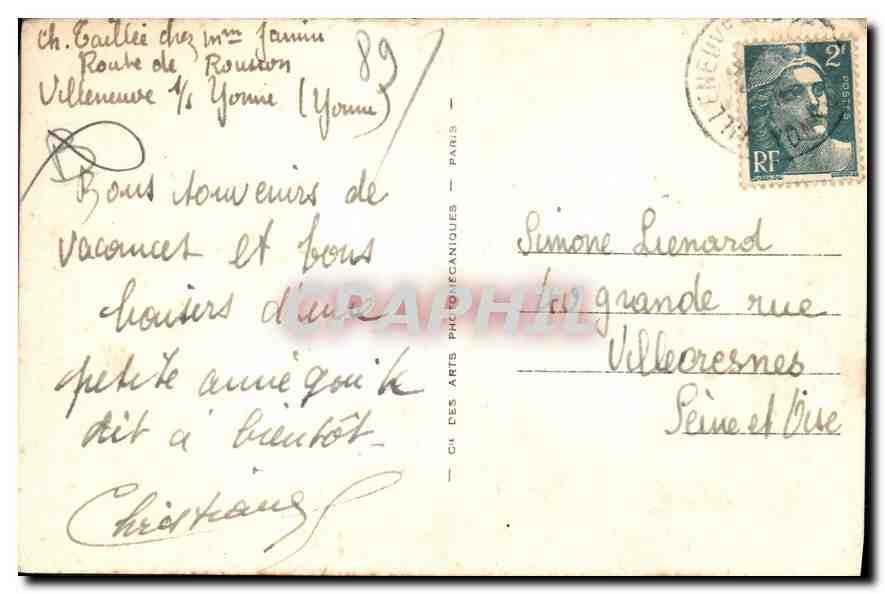 ch. Taillée chez mme Janin
Route de Rousson
Villeneuve s/s Yonne (Yonne)
89
B
Bons souvenirs de
vacances et bons
baisers d'une
petite amie qui te
dit à bientôt
Christiane
— Cie DES ARTS PHOTOMÉCANIQUES — PARIS —
2F
POSTES
RF
Simone Liénard
40 grande rue
Villecresnes
Seine et Oise
CPAPHIL